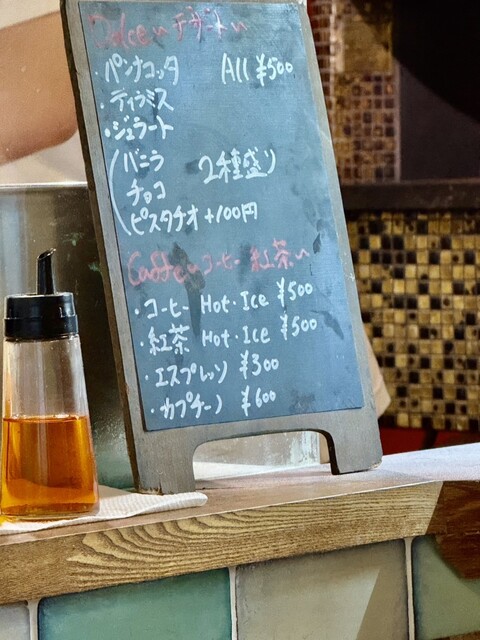 Dolce〜デザート〜
・パンナコッタ All ¥500
・ティラミス
・ジェラート
(バニラ 2種盛り
チョコ
ピスタチオ +100円
Caffe〜コーヒー 紅茶〜
・コーヒー Hot・Ice ¥500
・紅茶 Hot・Ice ¥500
・エスプレッソ ¥300
・カプチーノ ¥600